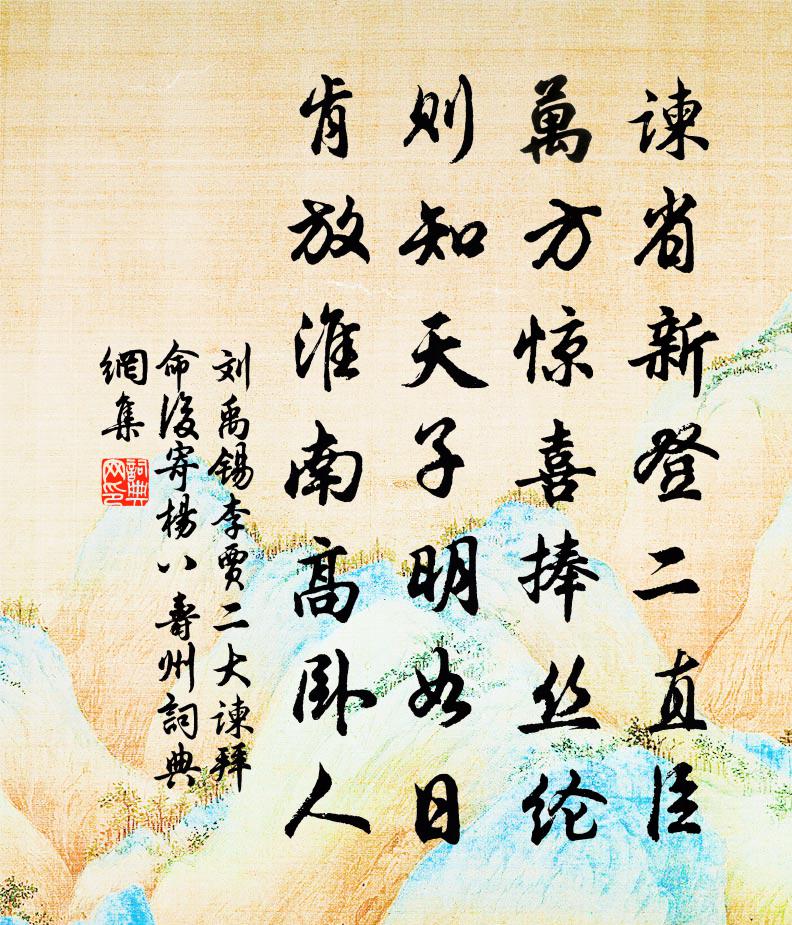 谏省新登二直臣
萬方惊喜捧丝纶
则知天子明如日
肯放淮南高卧人
刘禹锡李贾二大谏拜
命后寄楊八壽州词典
網集
詞典网印